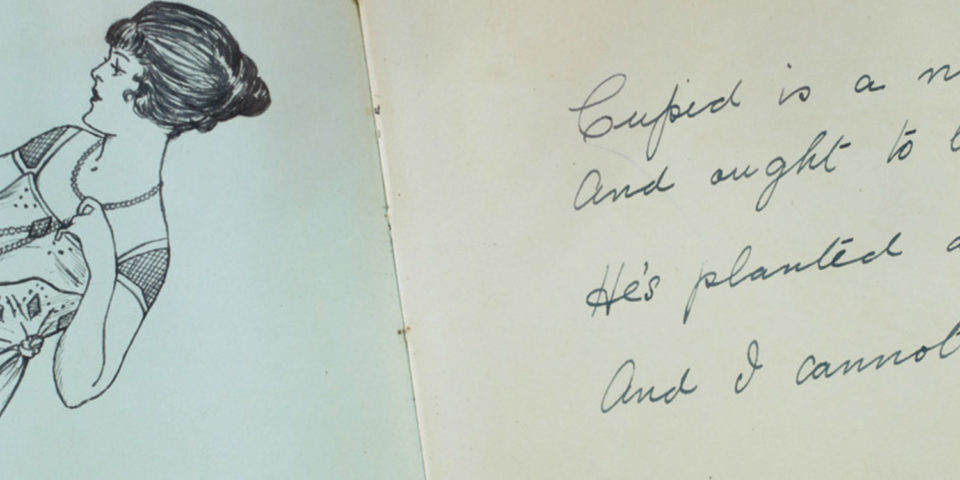 Cupid is a
And ought to
He's planted
And I cannot